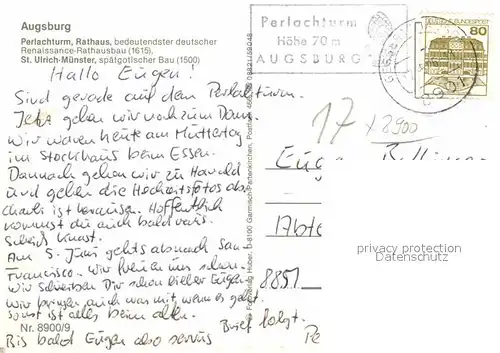 Augsburg
Perlachturm, Rathaus, bedeutendster deutscher
Renaissance-Rathausbau (1615).
St. Ulrich-Münster, spätgotischer Bau (1500)
Perlachturm
Höhe 70 m
AUGSBURG
80
Hallo Eugen!
Sind gerade auf dem Perlachturm.
Jetzt gehen wir noch zum Dom.
Wir waren heute am Muttertag
im Stockhaus beim Essen.
Dannach gehen wir zu Harald
und geben die Hochzeitsfotos ab.
Charli ist heraussen. Hoffentlich
kommst du auch bald raus.
Am 5. Juni gehts ab nach San
Francisco. Wir freuen uns schon.
Wir schreiben Dir schon lieber Eugen
Wir bringen auch was mit, wenn es geht.
sonst ist alles beim alten.
Bis bald Eugen also servus
Brief folgt.
17 x 8900
Eugen
Abte
8851
Pe
privacy protection
Datenschutz
Huber, D-8100 Garmisch-Partenkirchen,
Nr. 8900/9